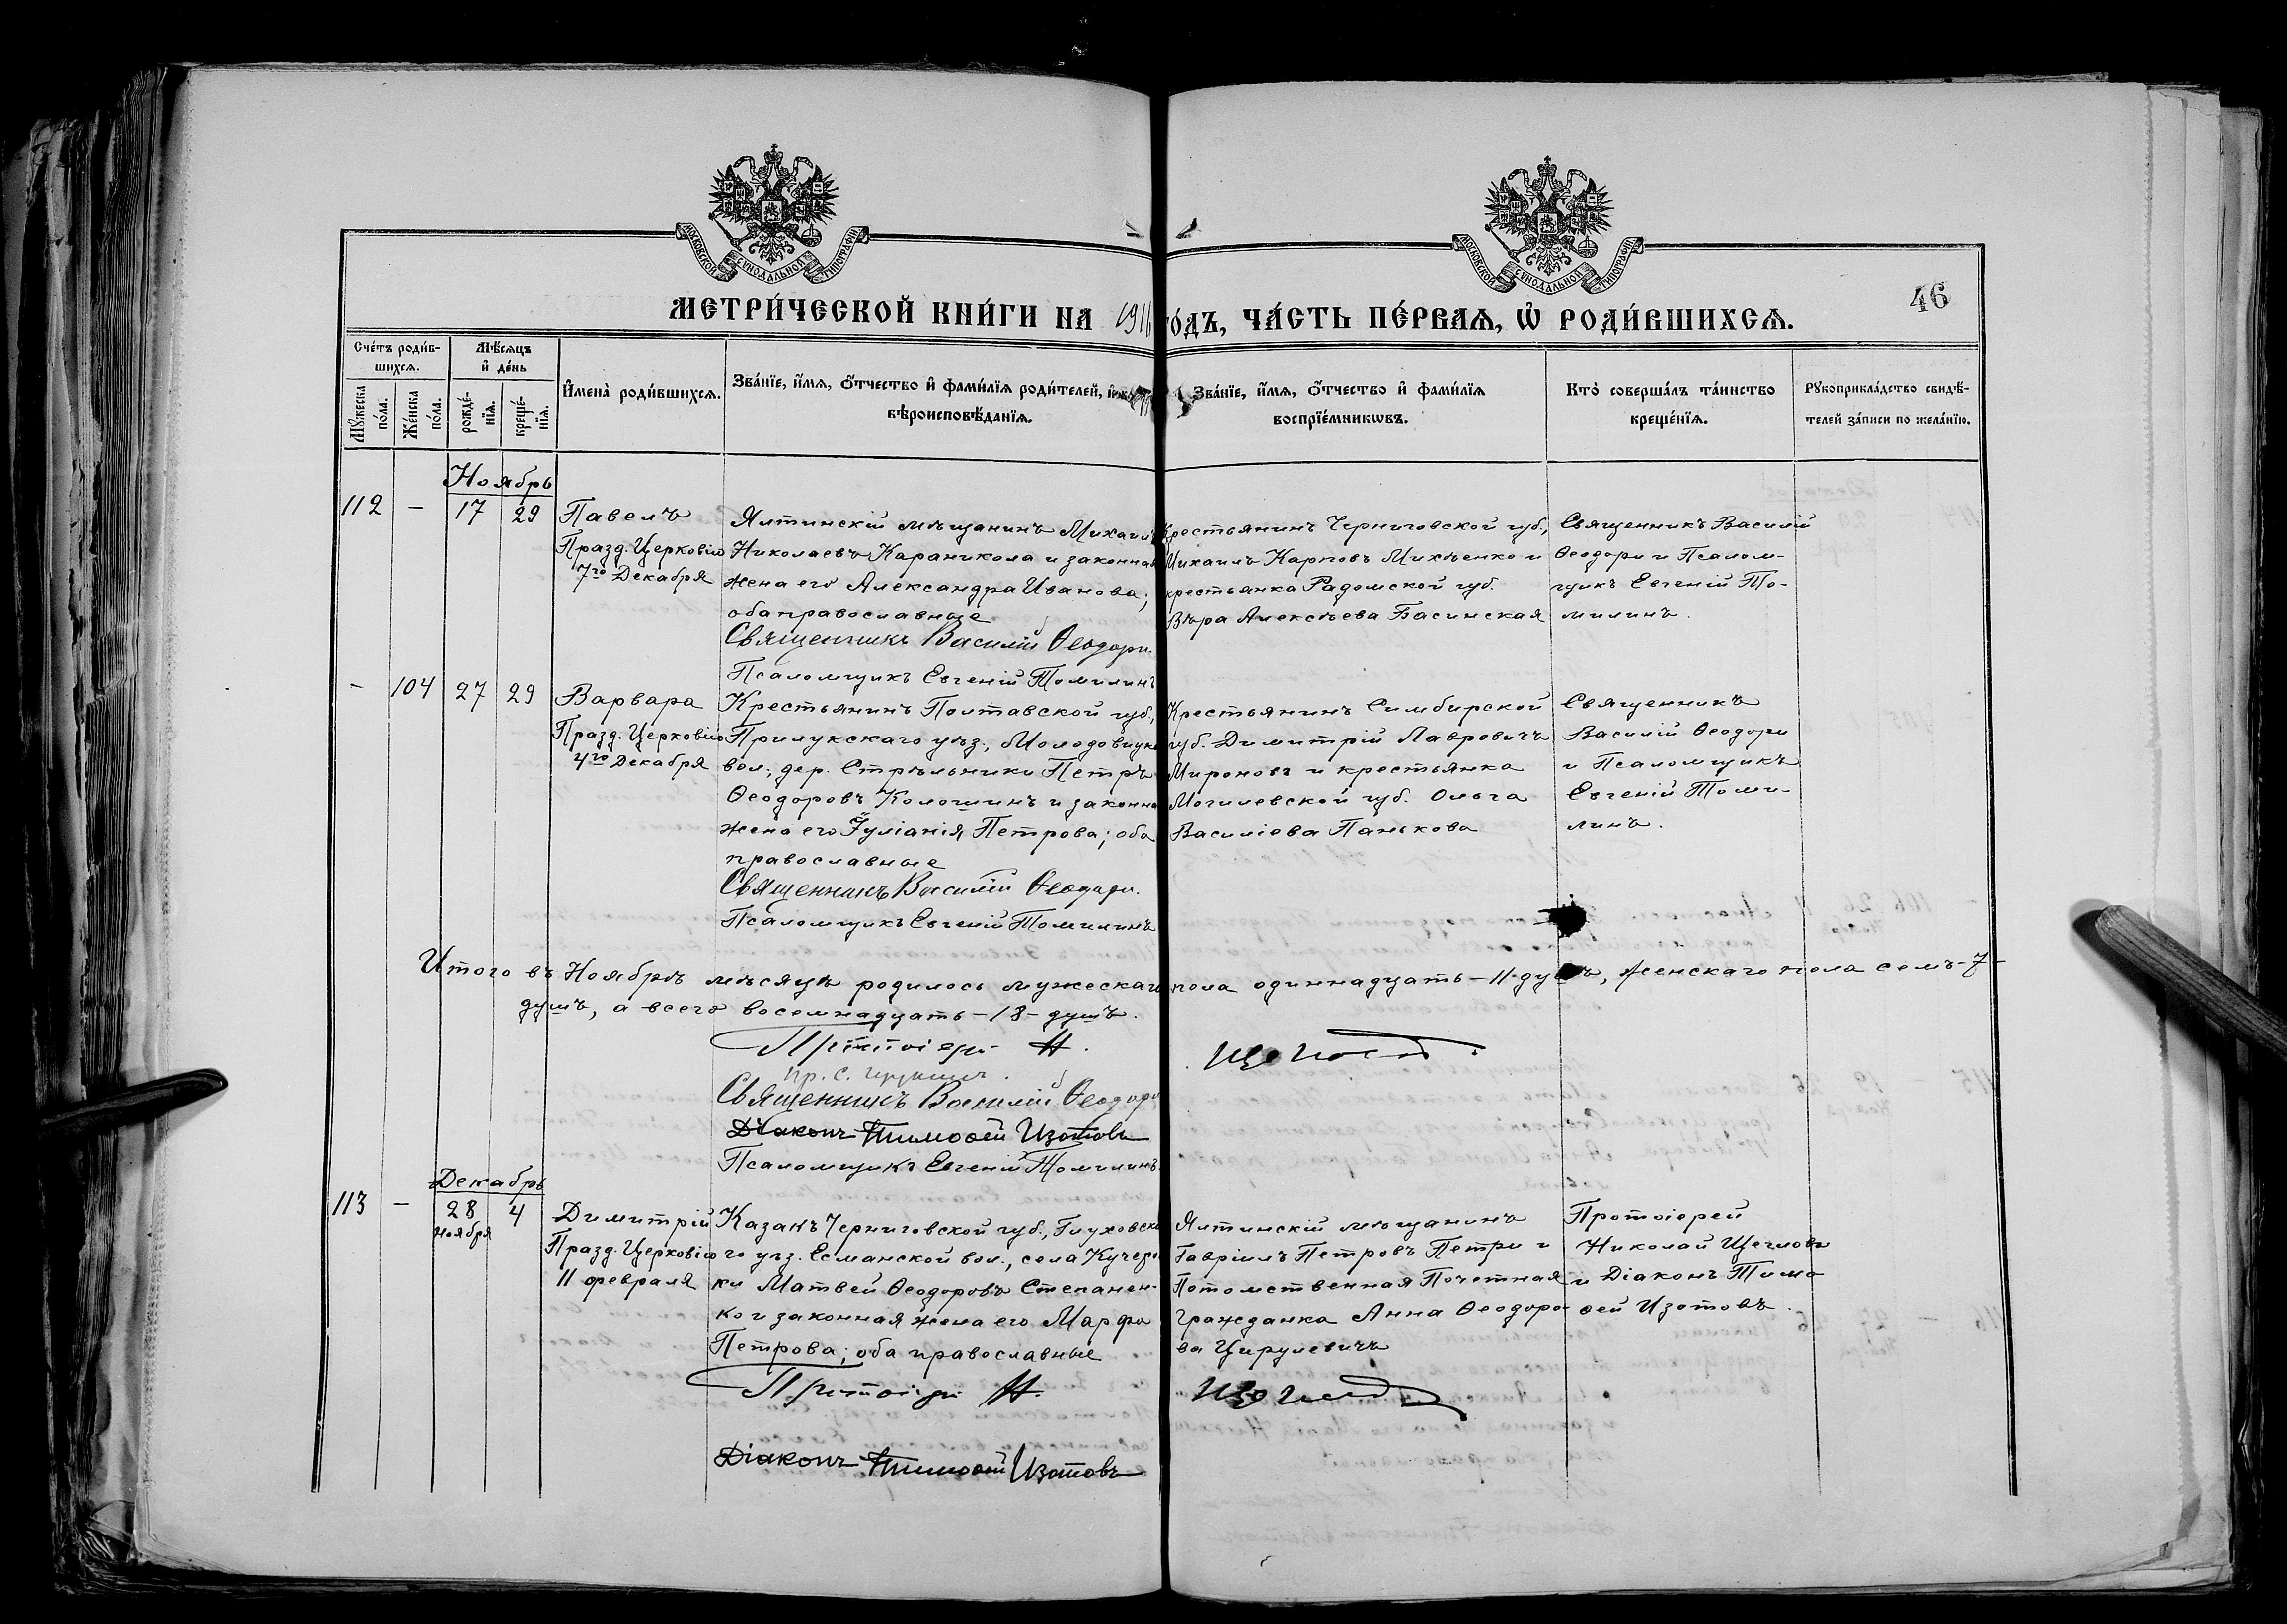 МОСКОВСКОЙ СѴНОДАЛЬНОЙ ТИПОГРАФІИ
МОСКОВСКОЙ СѴНОДАЛЬНОЙ ТИПОГРАФІИ
46
МЕТРИ́ЧЕСКОЙ КНИ́ГИ НА 1916 ГО́ДЪ, ЧА́СТЬ ПЕ́РВАѦ, Ѡ҆ РОДИ́ВШИХСѦ.
Сче́тъ роди́в-
шихсѧ.
Мꙋ́жеска по́ла.
Же́нска по́ла.
Мѣ́сѧцъ
и҆ де́нь
рожде́-
нїѧ.
креще́-
нїѧ.
И҆мена̀ роди́вшихсѧ.
Зва́нїе, и҆́мѧ, ѻ҆́тчество и҆ фами́лїѧ роди́телей,
вѣроисповѣ́данїѧ.
Зва́нїе, и҆́мѧ, ѻ҆́тчество и҆ фами́лїѧ
воспрїе́мникѡвъ.
Кто̀ соверша́лъ та́инство
креще́нїѧ.
Рꙋкоприкла́дство свидѣ́-
телей за́писи по жела́нїю.
Ноябрь
112 - 17 29
Павелъ
Празд. Церковію
7го Декабря
Ялтинскій мѣщанинъ Михаилъ
Николаевъ Караникола и законная
жена его Александра Иванова;
оба православные
Священникъ Василій Ѳеодори.
Псаломщикъ Евгеній Томилинъ
Крестьянинъ Черниговской губ.,
Михаилъ Карповъ Михѣенко и
крестьянка Радомской губ.
Вѣра Алексѣева Басинская
Священникъ Василій
Ѳеодори и Псалом-
щикъ Евгеній То-
милинъ.
- 104 27 29
Варвара
Празд. Церковію
4го Декабря
Крестьянинъ Полтавской губ.,
Прилукскаго уѣз., Молодовщук
вол., дер. Стрѣльники Петръ
Ѳеодоровъ Коломинъ и законна
жена его Іуліанія Петрова; оба
православные
Священникъ Василій Ѳеодори.
Псаломщикъ Евгеній Томилинъ
Крестьянинъ Симбирской
губ. Димитрій Лавровичъ
Мироновъ и крестьянка
Могилевской губ. Ольга
Василіева Панькова
Священникъ
Василій Ѳеодори
и Псаломщикъ
Евгеній Томи-
линъ.
Итого въ Ноябрѣ мѣсяцѣ родилось мужескаго пола одиннадцать-11-душъ, женскаго пола семь-7-
душъ, а всего восемнадцать-18-душъ.
Протоіерей Н. Щегловъ.
Священникъ Василій Ѳеодори
Діаконъ Тимоѳей Изотовъ
Псаломщикъ Евгеній Томилинъ.
Декабрь
113 - 28 4
ноября
Димитрій
Празд. Церковію
11 февраля
Казакъ Черниговской губ., Глуховска
го уѣз. Есманской вол., села Кучеро
ки Матвей Ѳеодоровъ Степанен-
ко и законная жена его Марфа
Петрова; оба православные
Протоіерей Н. Щегловъ
Діаконъ Тимоѳей Изотовъ
Ялтинскій мѣщанинъ
Гавріилъ Петровъ Петри и
Потомственная Почетная
Гражданка Анна Ѳеодоро-
ва Цирулевичъ
Протоіерей
Николай Щегловъ
и Діаконъ Тимо
ѳей Изотовъ.